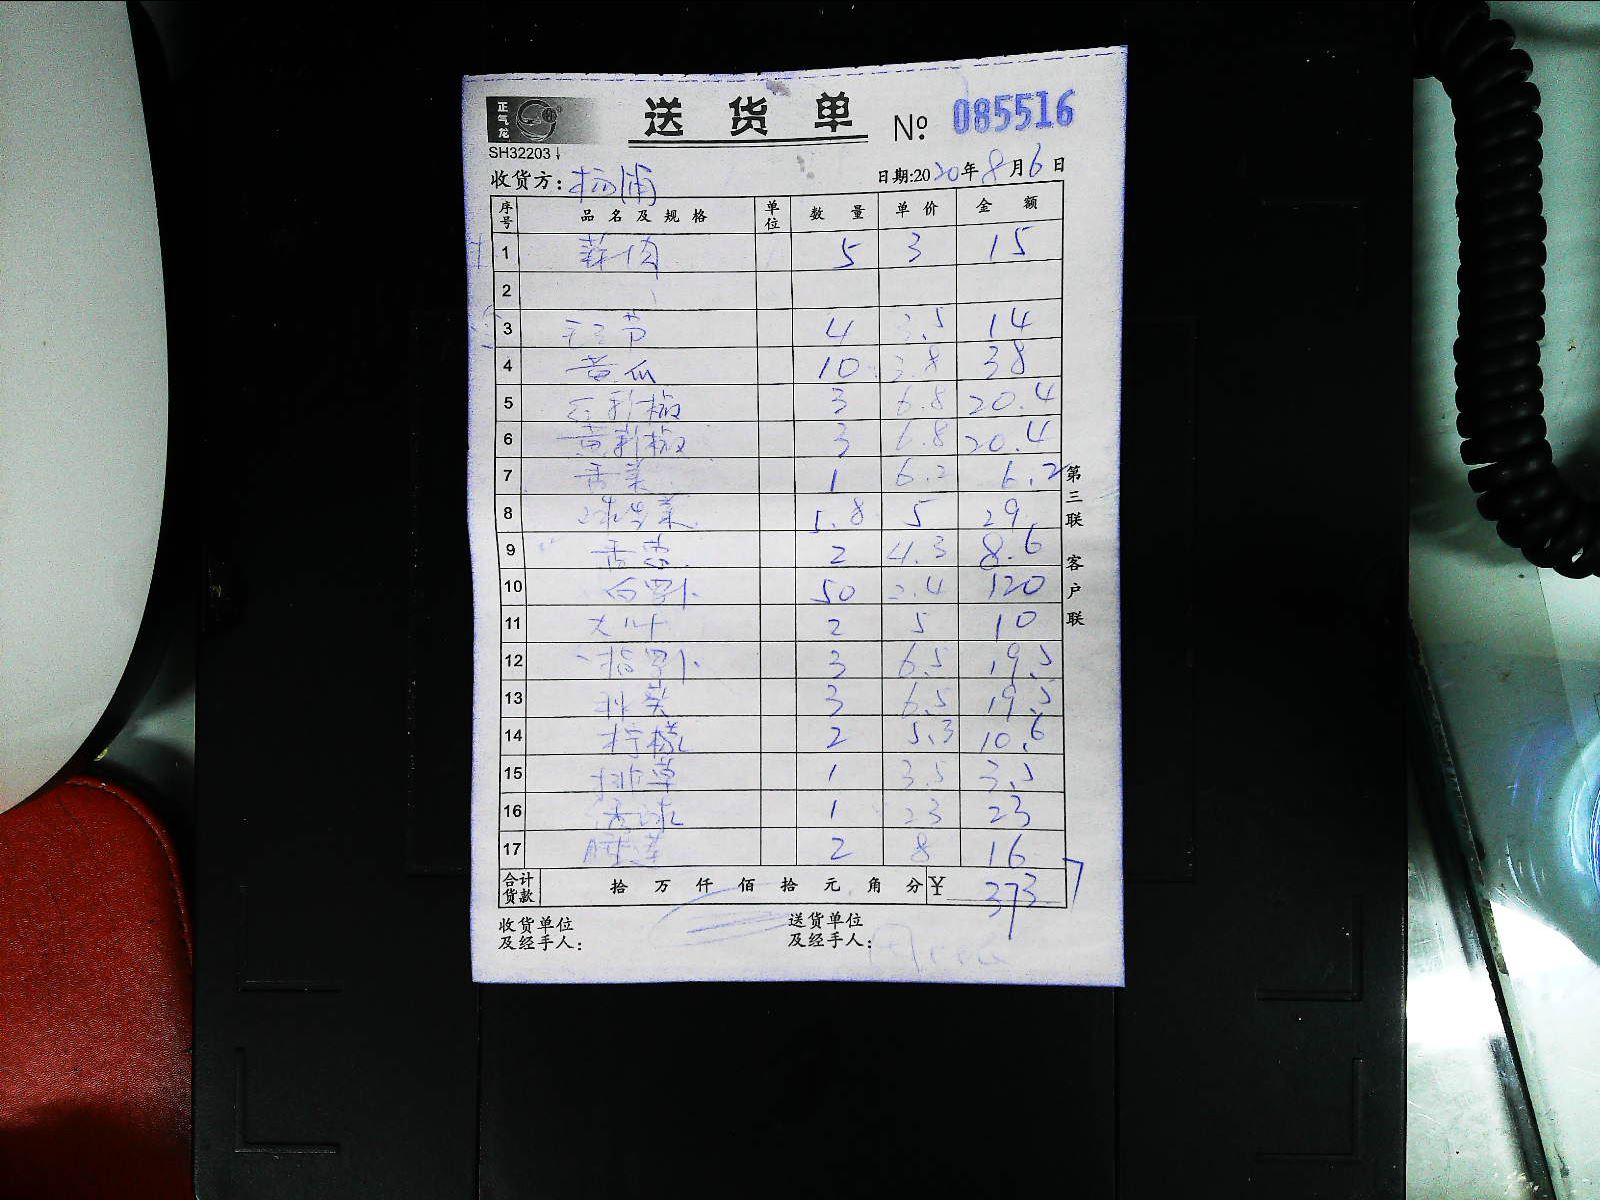 正气龙
送货单 № 085516
SH32203
收货方: 杨浦 日期:2020年8月6日
序号 品名及规格 单位 数量 单价 金额
1 蒜肉 5 3 15
2
3 4 3.5 14
4 黄瓜 10 3.8 38
5 红彩椒 3 6.8 20.4
6 黄彩椒 3 6.8 20.4
7 香菜 1 6.2 6.2
8 球生菜 5.8 5 29
9 香葱 2 4.3 8.6
10 白罗卜 50 2.4 120
11 大叶 2 5 10
12 指罗卜 3 6.5 19.5
13 3 6.5 19.5
14 柠檬 2 5.3 10.6
15 排草 1 3.5 3.5
16 绣球 1 23 23
17 2 8 16
合计货款 拾 万 仟 佰 拾 元 角 分 ¥ 373.7
收货单位 送货单位
及经手人: 及经手人:
第三联 客户联